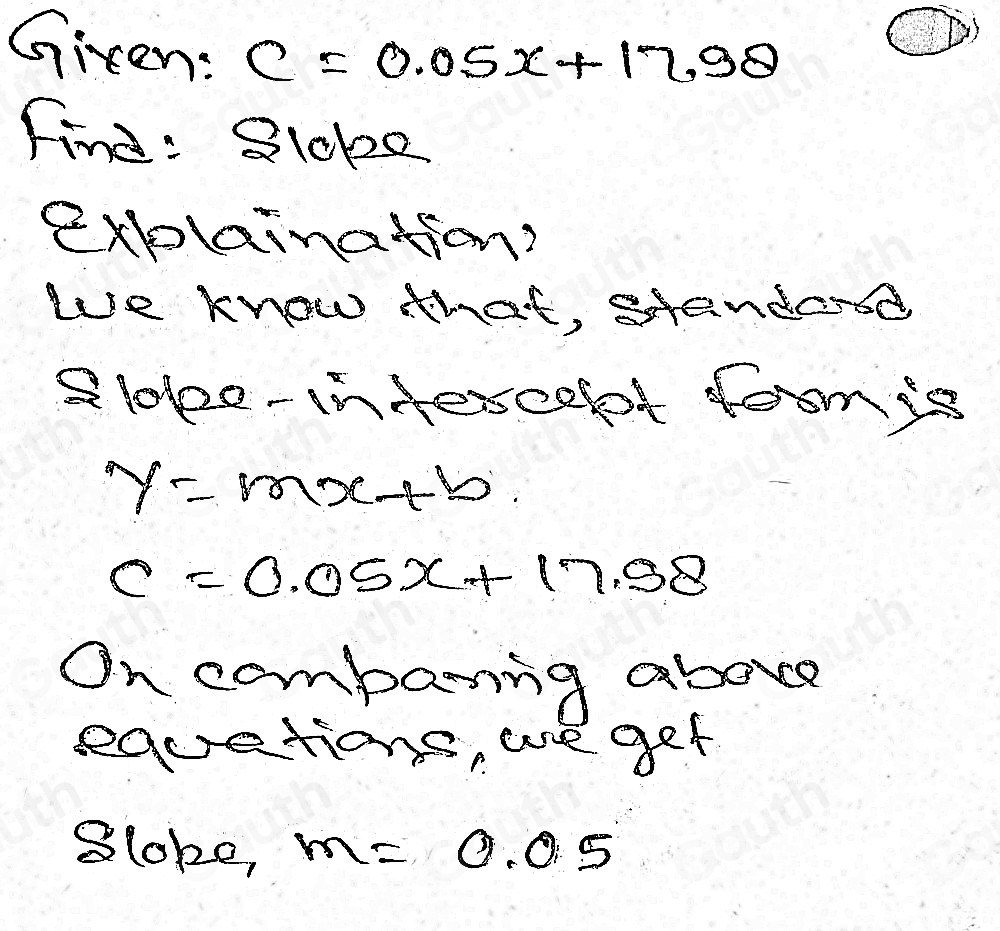 Given: C = 0.05x + 17.98
Find: Slope
Explaination,
We know that, standard
Slope-intercept form is
Y = mx + b.
C = 0.05x + 17.98
On comparing above
equations, we get
Slope, m = 0.05